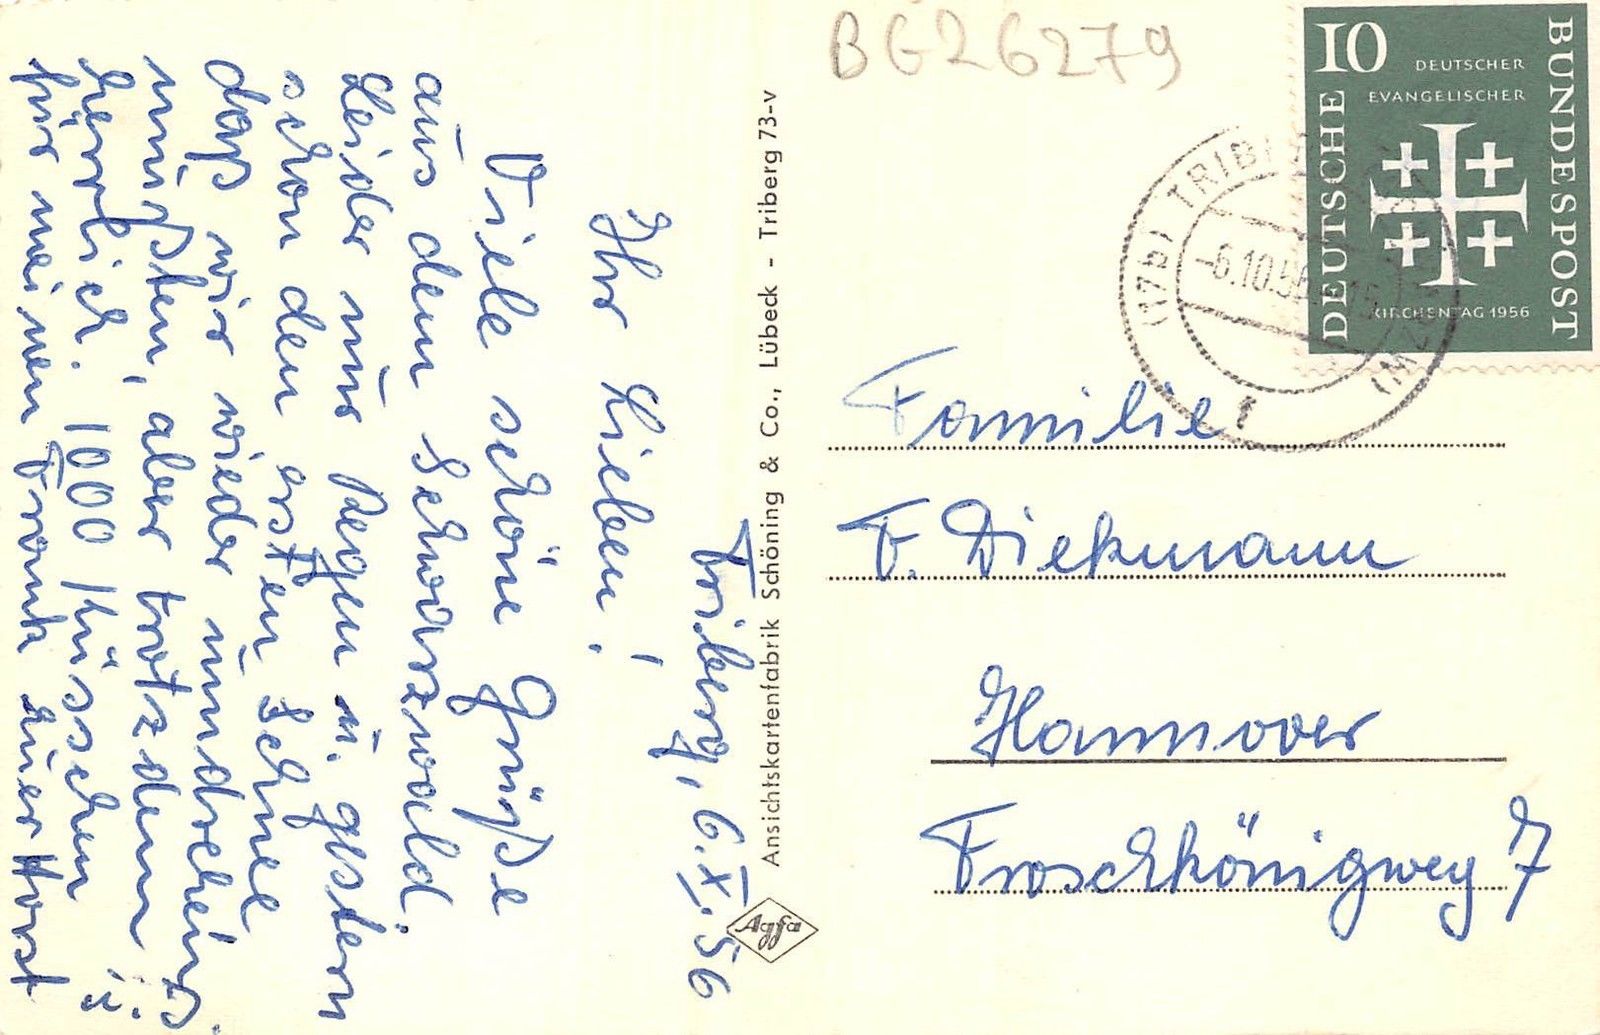 Triberg, 6.X.56
Ihr Lieben!
Viele schöne Grüße
aus dem Schwarzwald.
Leider nur Regen u. gestern
schon den ersten Schnee
daß wir wieder
mußten, aber trotzdem
herrlich. 1000 Küsschen
für meinen Frank Euer Horst
Ansichtskartenfabrik Schöning & Co., Lübeck - Triberg 73-v
Agfa
BG26279
10
DEUTSCHER
EVANGELISCHER
DEUTSCHE
BUNDESPOST
KIRCHENTAG 1956
(17b) TRIBERG
-6.10.56
Familie
F. Diekmann
Hannover
Froschkönigweg 7